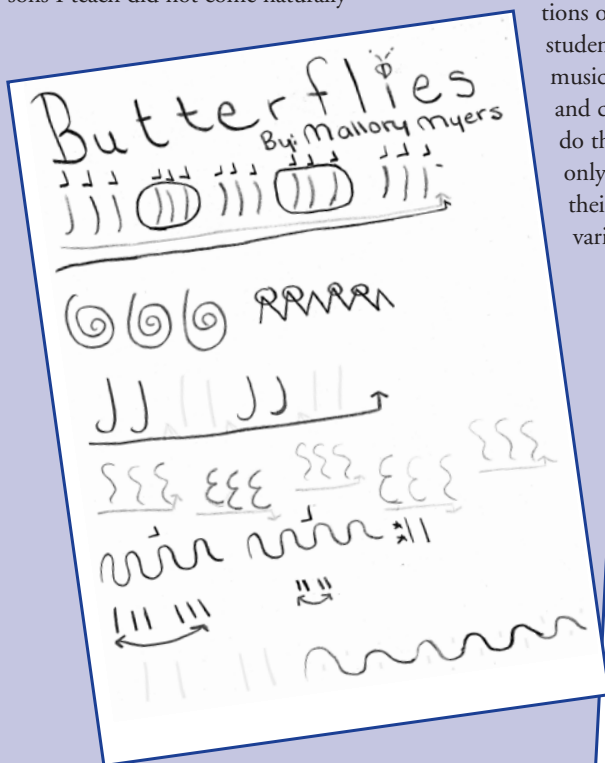 sons I teach did not come naturally
tions o
studen
music
and c
do th
only
their
vari
Butterflies
By: Mallory Myers